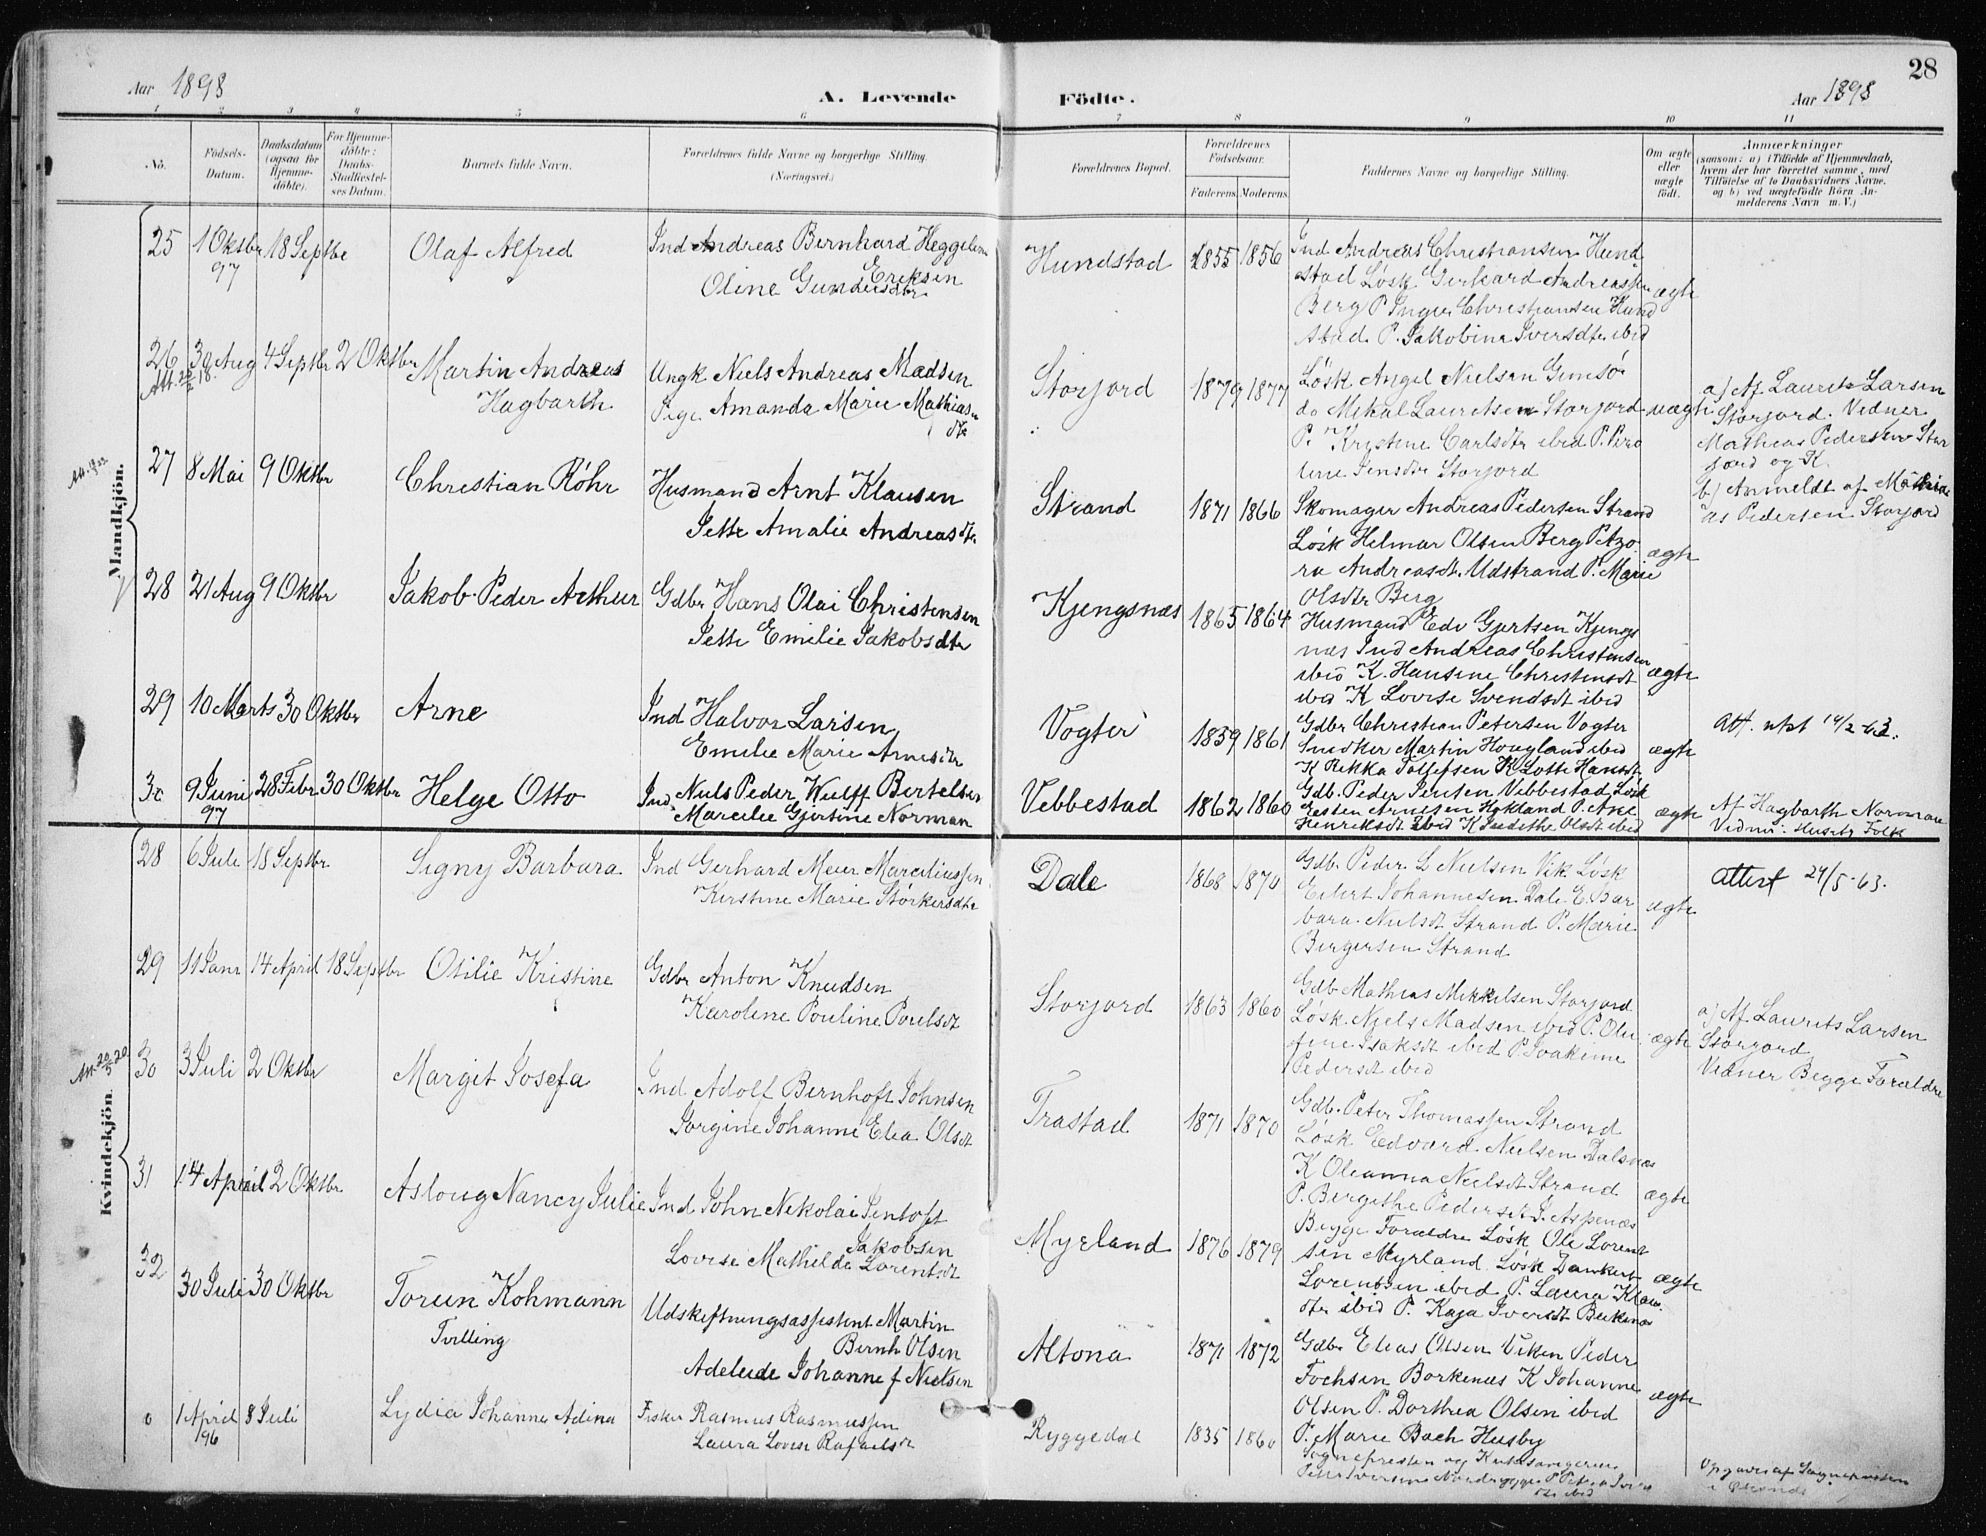 28
Aar 1898
A. Levende Födte.
Aar 1898
1 2 3 4 5 6 7 8 9 10 11
No. Födsels-Datum. Daabsdatum (ogsaa for Hjemme-döbte). For Hjemme-döbte: Daabs-Stadfæstel-ses Datum. Barnets fulde Navn. Forældrenes fulde Navne og borgerlige Stilling. (Næringsvei.) Forældrenes Bopæl. Forældrenes Födselsaar. Faderens. Moderens. Faddernes Navne og borgerlige Stilling. Om ægte eller uægte födt. Anmærkninger (saasom: a) i Tilfælde af Hjemmedaab, hvem der har forrettet samme, med Tilföielse af to Daabsvidners Navne, og b) ved uægtefödte Börn An-melderens Navn m. V.)
Mandkjön.
25 1 Oktbr 97 18 Septbr Olaf Alfred
Ind Andreas Bernhard
Eriksen
Oline Gundersdtr
Hundstad 1855 1856
Ind Andreas Christiansen Hund
stad Løsk Gerhard Andreassen
Berg P. Inger Christiansen Hund
stad P. Jakobine Iversdtr ibid
ægte
26 30 Aug 4 Septbr 2 Oktbr Martin Andreas
Hagbarth
Ungk Niels Andreas Madsen
Pige Amanda Marie Mathias
dtr
Storjord 1879 1877
Løsk Angel Nielsen Gimsø
do Mikal Lauritsen Storjord
P. Krystene Carlsdtr ibid P. Pero
line Jensdtr Storjord
uægte
a) Af Laurits Larsen
Storjord. Vidner
Mathias Pedersen Stor
jord og K.
b) Anmeldt af Mathi
as Pedersen Storjord
27 8 Mai 9 Oktbr Christian Röhr
Husmand Arnt Klausen
Jette Amalie Andreasdtr
Strand 1871 1866
Skomager Andreas Pedersen Strand
Løsk Helmar Olsen Berg P.
ra Andreasdt. Udstrand P. Marie
Olsdtr Berg
ægte
28 21 Aug 9 Oktbr Jakob Peder Arthur
Gdbr Hans Olai Christensen
Jette Emilie Jakobsdtr
Kjengsnæs 1865 1864
Husmand Edv Gjertsen Kjengs
næs Ind Andreas Christensen
ibid K. Hansine Christensdt
ibid K Lovise Svendsdt ibid
ægte
29 10 Marts 30 Oktbr Arne
Ind Halvor Larsen
Emilie Marie Arnesdtr
Vogter 1839 1861
Gdbr Christian Petersen Vogter
Snedker Martin Hougland ibid
K Rikka Tollefsen K Lotte Hansdt
ægte
Att. utst 14/2-63.
30 9 Juni 97 28 Febr 30 Oktbr Helge Otto
Ind Niels Peder Wulff Bertelsen
Marcilie Gjertine Norman
Vebbestad 1862 1860
Gdb. Peder Jensen Vebbestad Løsk
Esten Arnesen Hokland P. Ane
Henriksdt ibid K Judithe Olsdt ibid
ægte
Af Hagbarth Norman
Vidner: Husets Folk
Kvindekjön.
28 6 Juli 18 Septbr Signy Barbara
Ind Gerhard Meier Marciliussen
Kerstine Marie Størkersdtr
Dale 1868 1870
Gdb. Peder L Nielsen Vik Løsk
Eilert Johannesen Dale E. Bar
bara Nielsdt Strand P. Marie
Birgersen Strand
ægte
attest 24/5-63.
29 11 Janr 14 April 18 Septbr Otilie Kristine
Gdbr Anton Knudsen
Karoline Pouline Poulsdt
Storjord 1863 1860
Gdb Mathias Mikkelsen Storjord
Løsk Niels Madsen ibid P. Olu
fine Isaksdt ibid P. Joakime
Pedersdt ibid
ægte
a) Af Laurits Larsen
Storjord
Vidner Begge Forældre
Att. 20/5 20
30 3 Juli 2 Oktbr Margit Josefa
Ind Adolf Bernhoft Johnsen
Jorgine Johanne Elea Olsdt
Trastad 1871 1870
Gdb. Peter Thomassen Strand
Løsk Edvard Nielsen Dalsnæs
K Oleanna Nielsdt Strand
P. Bergithe Pedersdt Aspenæs
ægte
31 14 April 2 Oktbr Asloug Nancy Julie
Ind John Nikolai Jentoft
Jakobsen
Lovise Mathilde Lorentsdt
Myrland 1876 1879
Begge Forældre Løsk Ole Lorent
sen Myrland Løsk Dankert
Lorentsen ibid P. Laura Klau
dtr ibid P. Kaja Iversdt
ægte
32 30 Juli 30 Oktbr Torun Kohmann
Tvilling
Udskiftningsassistent Martin
Bernh Olsen
Adeleide Johanne f Nielsen
Altona 1871 1872
Gdbr Elias Olsen Viken Peder
Fochsen Borkenæs K Johanne
Olsen P. Dorthea Olsen ibid
P. Marie Bach Husby
ægte
0 1 April 96 8 Juli Lydia Johanne Adina
Fisker Rasmus Rasmussen
Laura Lovise Rafaelsdt
Ryggedal 1835 1860
Sognepresten og Kirkesangeren
ibid
Opgivet af Sognepresten
i